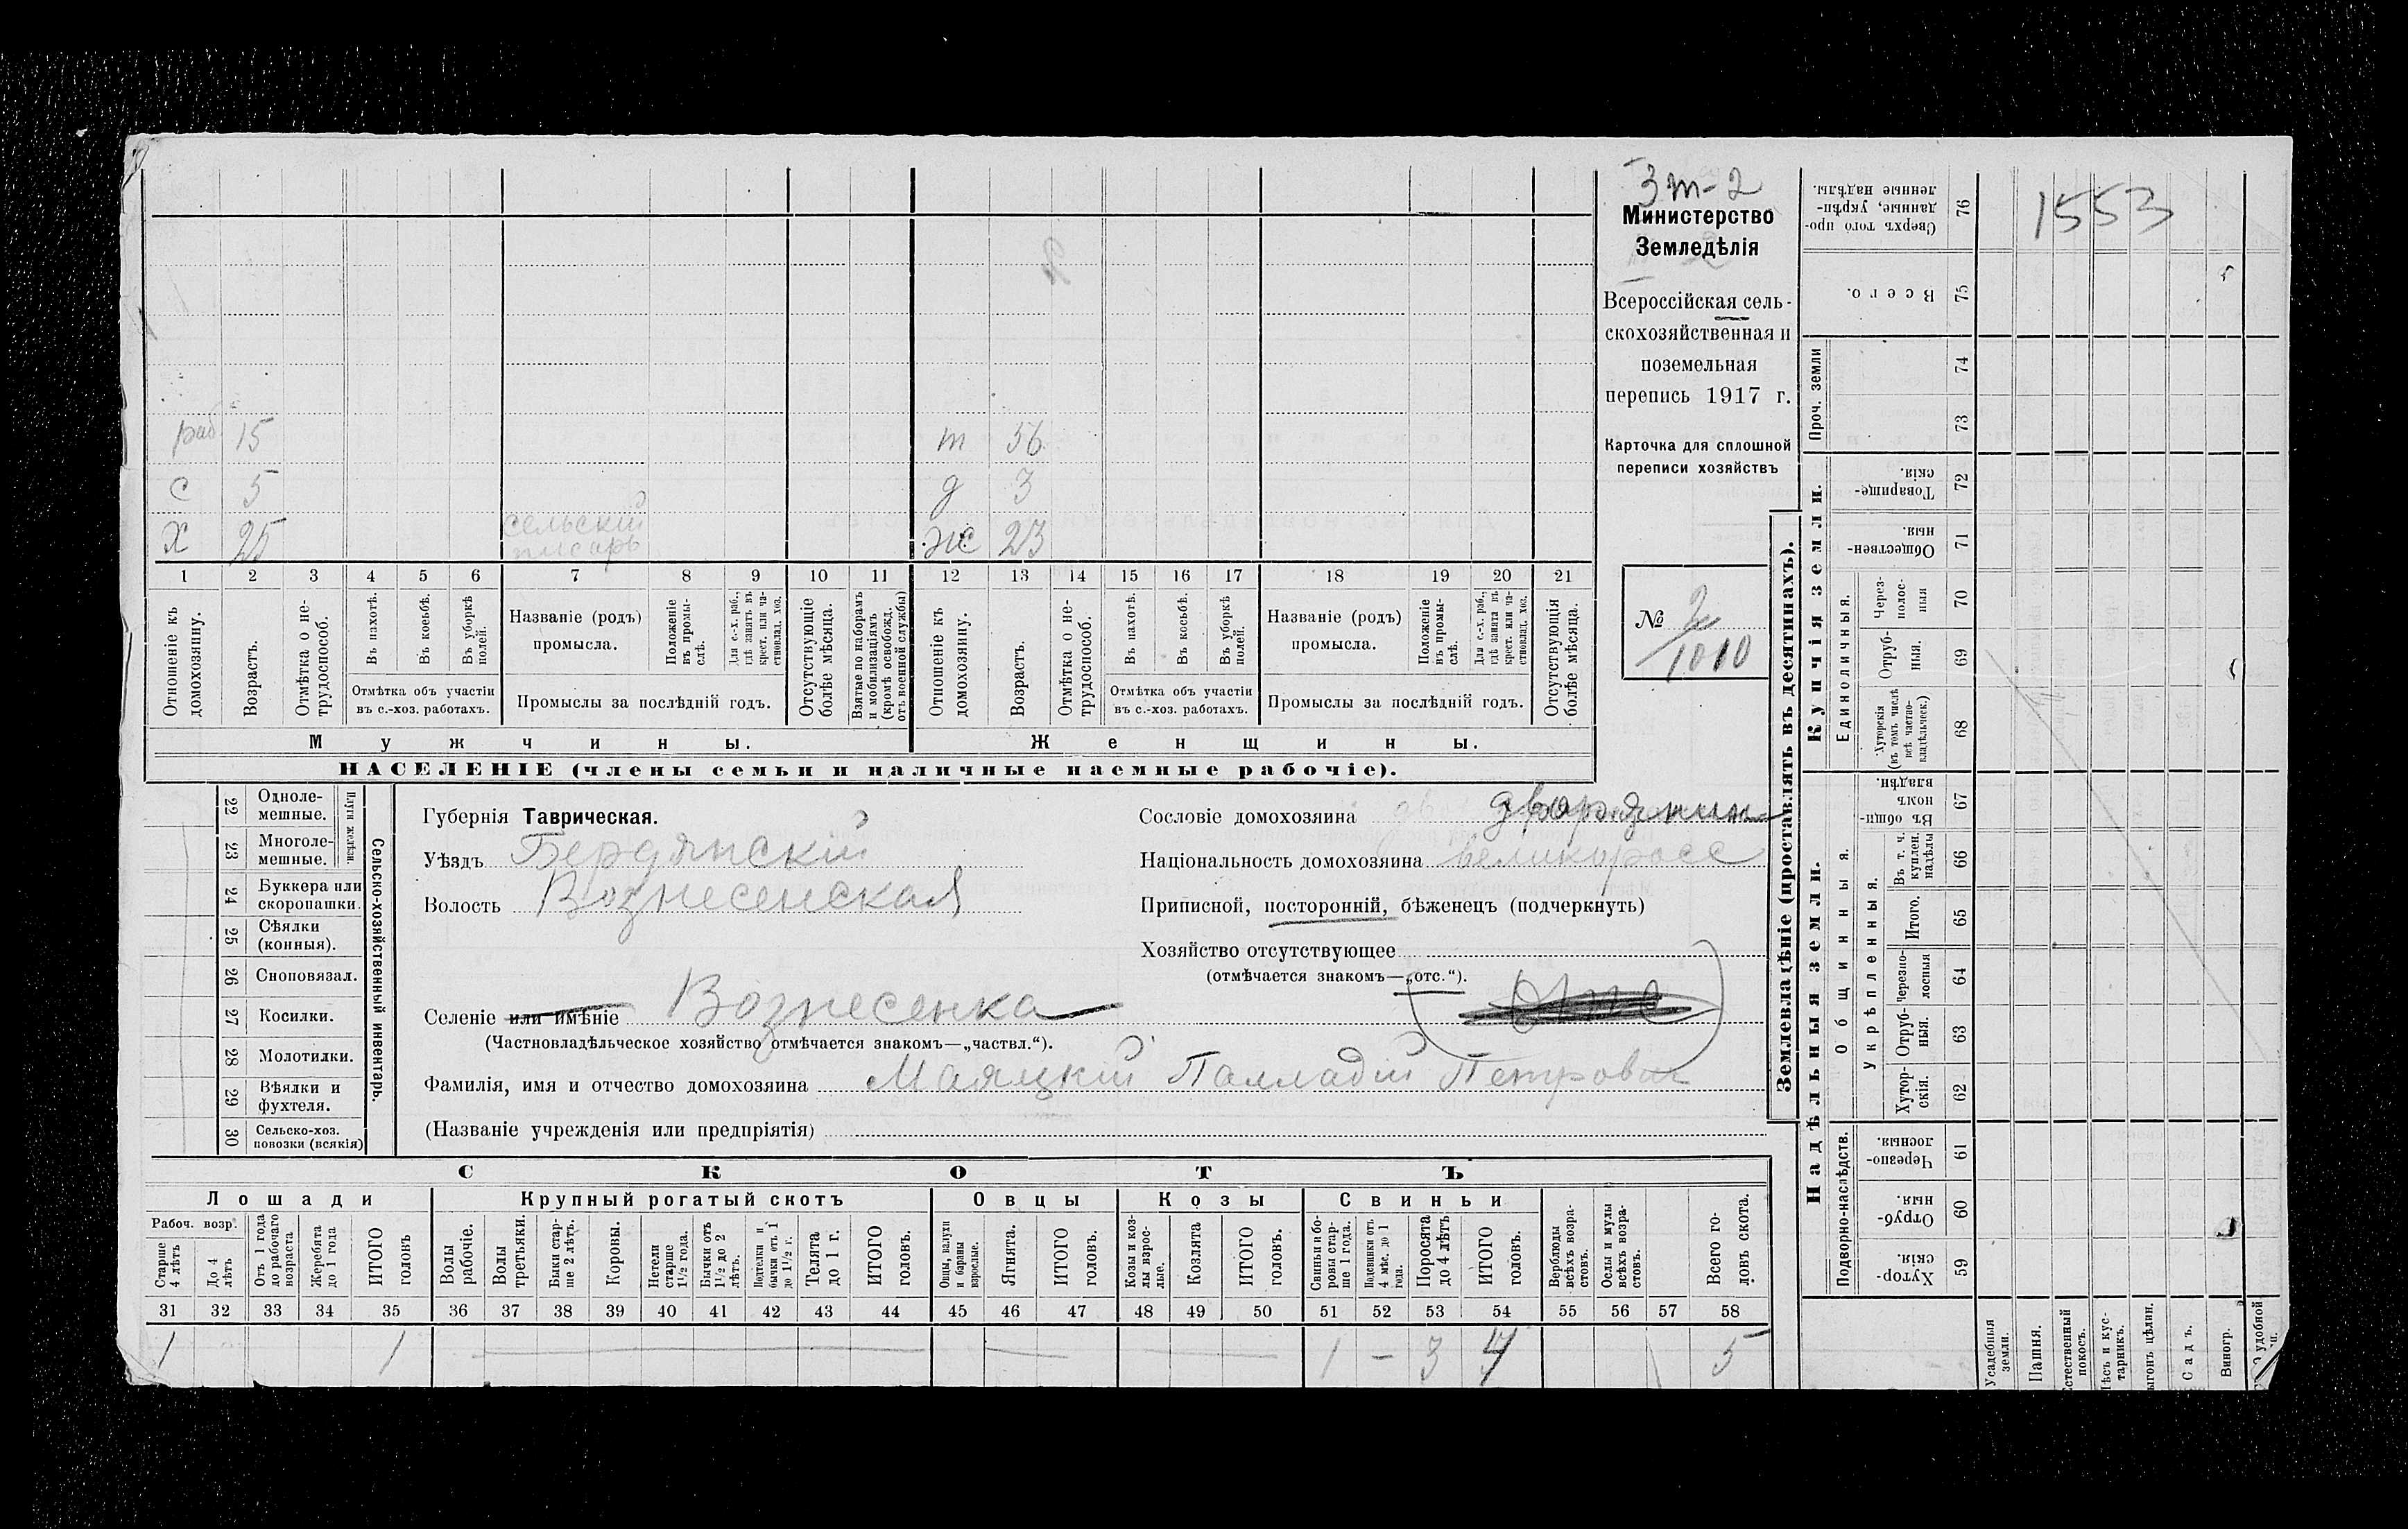 Зт-2
Министерство
Земледѣлія
Всероссійская сель-
скохозяйственная и
поземельная
перепись 1917 г.
Карточка для сплошной
переписи хозяйствъ
№ 2
1010
раб 15
т 56
с 5
д 3
х 25 сельскій писарь
ж 23
1 2 3 4 5 6 7 8 9 10 11 12 13 14 15 16 17 18 19 20 21
Отношеніе къ домохозяину.
Возрастъ.
Отмѣтка о не-трудоспособ.
Въ пахотѣ.
Въ косьбѣ.
Въ уборкѣ полей.
Отмѣтка объ участіи
въ с.-хоз. работахъ.
Названіе (родъ)
промысла.
Положеніе въ промы-слѣ.
Для с.-х. раб., гдѣ занятъ въ крест. или ча-стновлад. хоз.
Промыслы за послѣдній годъ.
Отсутствующіе болѣе мѣсяца.
Взятые по наборамъ и мобилизаціямъ (кромѣ освобожд. отъ военной службы)
Отношеніе къ домохозяину.
Возрастъ.
Отмѣтка о не-трудоспособ.
Въ пахотѣ.
Въ косьбѣ.
Въ уборкѣ полей.
Отмѣтка объ участіи
въ с.-хоз. работахъ.
Названіе (родъ)
промысла.
Положеніе въ промы-слѣ.
Для с.-х. раб., гдѣ занята въ крест. или ча-стновлад. хоз.
Промыслы за послѣдній годъ.
Отсутствующія болѣе мѣсяца.
Мужчины.
Женщины.
НАСЕЛЕНІЕ (члены семьи и наличные наемные рабочіе).
22 Одноле-мешные.
23 Многоле-мешные.
24 Буккера или скоропашки.
25 Сѣялки (конныя).
26 Сноповязал.
27 Косилки.
28 Молотилки.
29 Вѣялки и фухтеля.
30 Сельско-хоз. повозки (всякія)
Сельско-хозяйственный инвентарь.
Губернія Таврическая.
Уѣздъ Бердянскій
Волость Вознесенская
Селеніе или имѣніе Вознесенка
(Частновладѣльческое хозяйство отмѣчается знакомъ—„частвл.“).
Сословіе домохозяина дворянин
Національность домохозяина великоросс
Приписной, посторонній, бѣженецъ (подчеркнуть)
Хозяйство отсутствующее
(отмѣчается знакомъ—„отс.“).
Фамилія, имя и отчество домохозяина Маяцкій Палладій Петрович
(Названіе учрежденія или предпріятія)
СКОТЪ
Лошади
Крупный рогатый скотъ
Овцы
Козы
Свиньи
Рабоч. возр.
Старше 4 лѣтъ
До 4 лѣтъ
Отъ 1 года до рабочаго возраста
Жеребята до 1 года
ИТОГО головъ
Волы рабочіе.
Волы третьяки.
Быки стар-ше 2 лѣтъ.
Коровы.
Нетели старше 1½ года.
Бычки отъ 1½ до 2 лѣтъ.
Подтелки и бычки отъ 1 до 1½ г.
Телята до 1 г.
ИТОГО головъ.
Овцы, валухи и бараны взрослые.
Ягнята.
ИТОГО головъ.
Козы и коз-лы взрос-лые.
Козлята
ИТОГО головъ.
Свиньи и бо-ровы стар-ше 1 года.
Подсвинки отъ 4 мѣс. до 1 года.
Поросята до 4 лѣтъ
ИТОГО головъ.
Верблюды всѣхъ возра-стовъ.
Ослы и мулы всѣхъ возра-стовъ.
Всего го-ловъ скота.
31 32 33 34 35 36 37 38 39 40 41 42 43 44 45 46 47 48 49 50 51 52 53 54 55 56 57 58
1 1 — — — 1 – 3 4 5
Землевладѣніе (проставлять въ десятинахъ).
Купчія земли.
Надѣльныя земли.
1553
76 Сверхъ того про-данные, укрѣп-ленные надѣлы.
75 Всего.
74
73
Проч. земли
72 Товарище-скія.
71 Обществен-ныя.
Единоличныя.
70 Через-полос-ныя
69 Отруб-ныя.
68 Хуторскія (въ томъ числѣ всѣ частно-владѣльческ.)
Общинныя.
67 Въ общин-номъ владѣн.
Укрѣпленныя.
66 Въ т. ч. куплен. надѣлы
65 Итого.
64 Черезпо-лосныя
63 Отруб-ныя.
62 Хутор-скія.
Подворно-наслѣдств.
61 Черезпо-лосныя.
60 Отруб-ныя.
59 Хутор-скія.
Усадебныя земли.
Пашня.
Сад ъ.
Виногр.